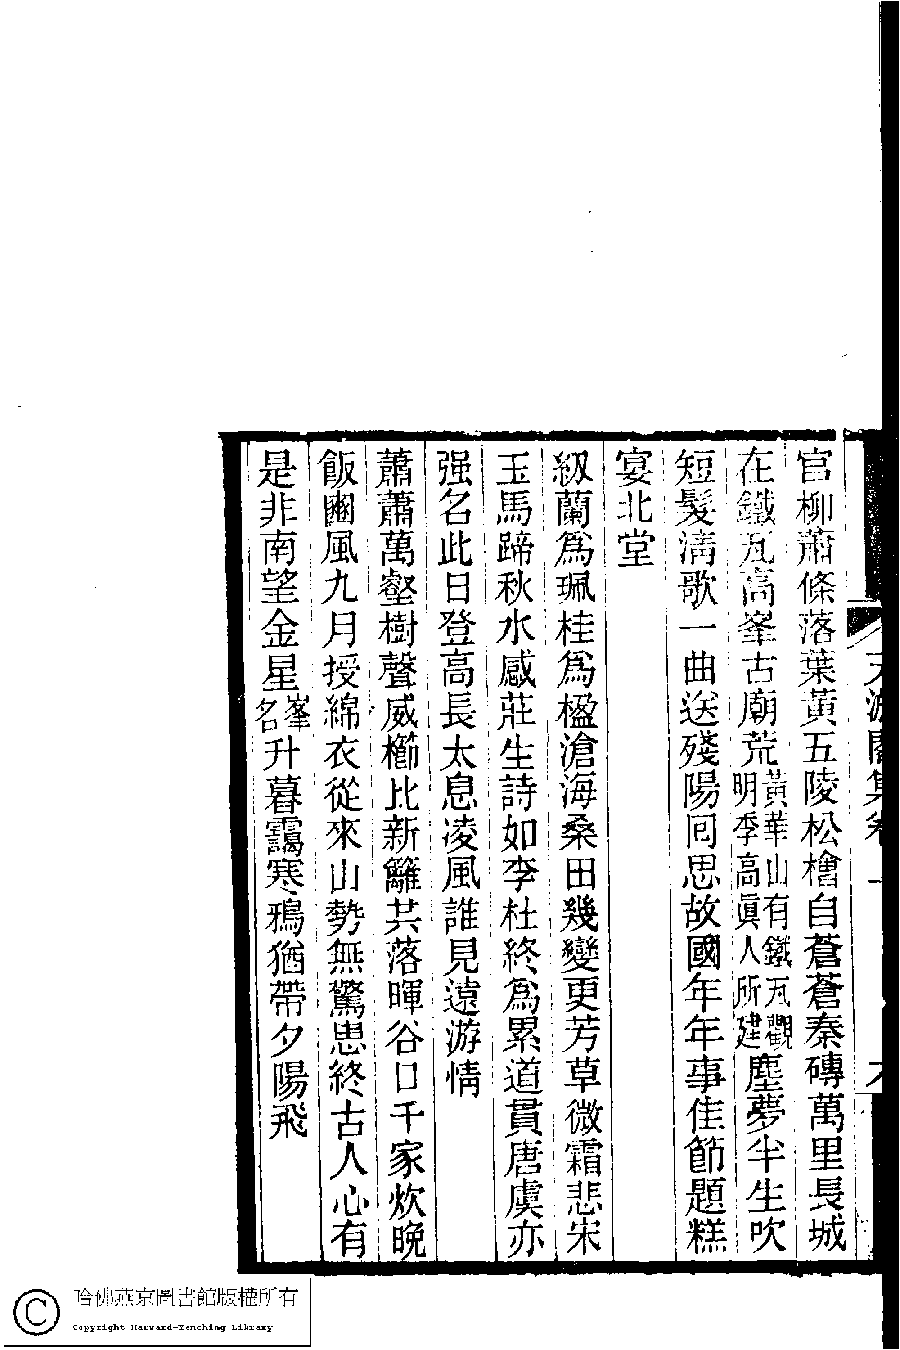 天游閣集卷一
官柳蕭條落葉黃五陵松檜自蒼蒼秦磚萬里長城
在鐵瓦高峯古廟荒黃華山有鐵瓦觀明季高眞人所建塵夢半生吹
短髮淸歌一曲送殘陽囘思故國年年事佳節題糕
宴北堂
紉蘭爲珮桂爲楹滄海桑田幾變更芳草微霜悲宋
玉馬蹄秋水感莊生詩如李杜終爲累道貫唐虞亦
强名此日登高長太息凌風誰見遠游情
蕭蕭萬壑樹聲威櫛比新籬共落暉谷口千家炊晚
飯豳風九月授綿衣從來山勢無驚患終古人心有
是非南望金星峯名升暮靄寒鴉猶帶夕陽飛
哈佛燕京圖書館版權所有
Copyright Harvard-Yenching Library